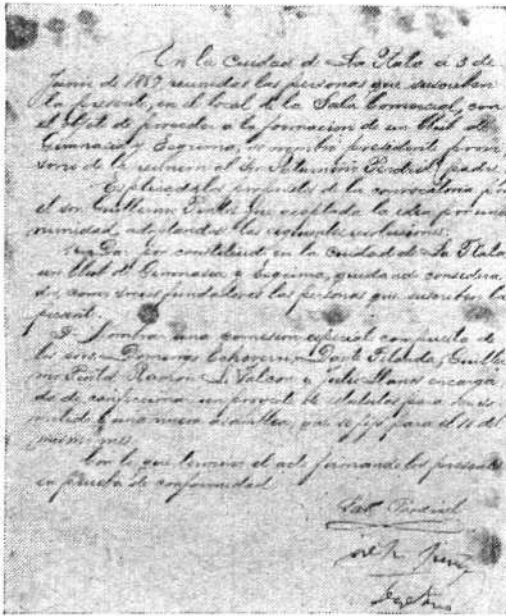 En la Ciudad de La Plata á 3 de
Junio de 1887 reunidas las personas que suscriben
la presente, en el local de la Sala Comercial, con
el objeto de proceder a la formacion de un Club de
Gimnasia y Esgrima, se nombró presidente provi
sorio de la reunion al Sr. Saturnino Perdriel (padre)
Esplicados los propositos de la convocatoria por
el sor. Guillermo Pintos fue aceptada la idea por una
nimidad, adoptandose las siguientes resoluciones:
Dar por constituido en la ciudad de La Plata,
un Club de Gimnasia y Esgrima, quedando considera
dos como socios fundadores las personas que suscriben la
presente.
Nombrar una comision especial compuesta de
los sores. Domingo Dante Guiller
mo Pintos Ramon L. Falcon y Julio Llanos encarga
da de confeccionar un proyecto de estatutos para
á una nueva asamblea, que se fijó para el del
mismo mes.
Con lo que terminó el acto firmando los presentes
en prueba de conformidad
Sat. Perdriel